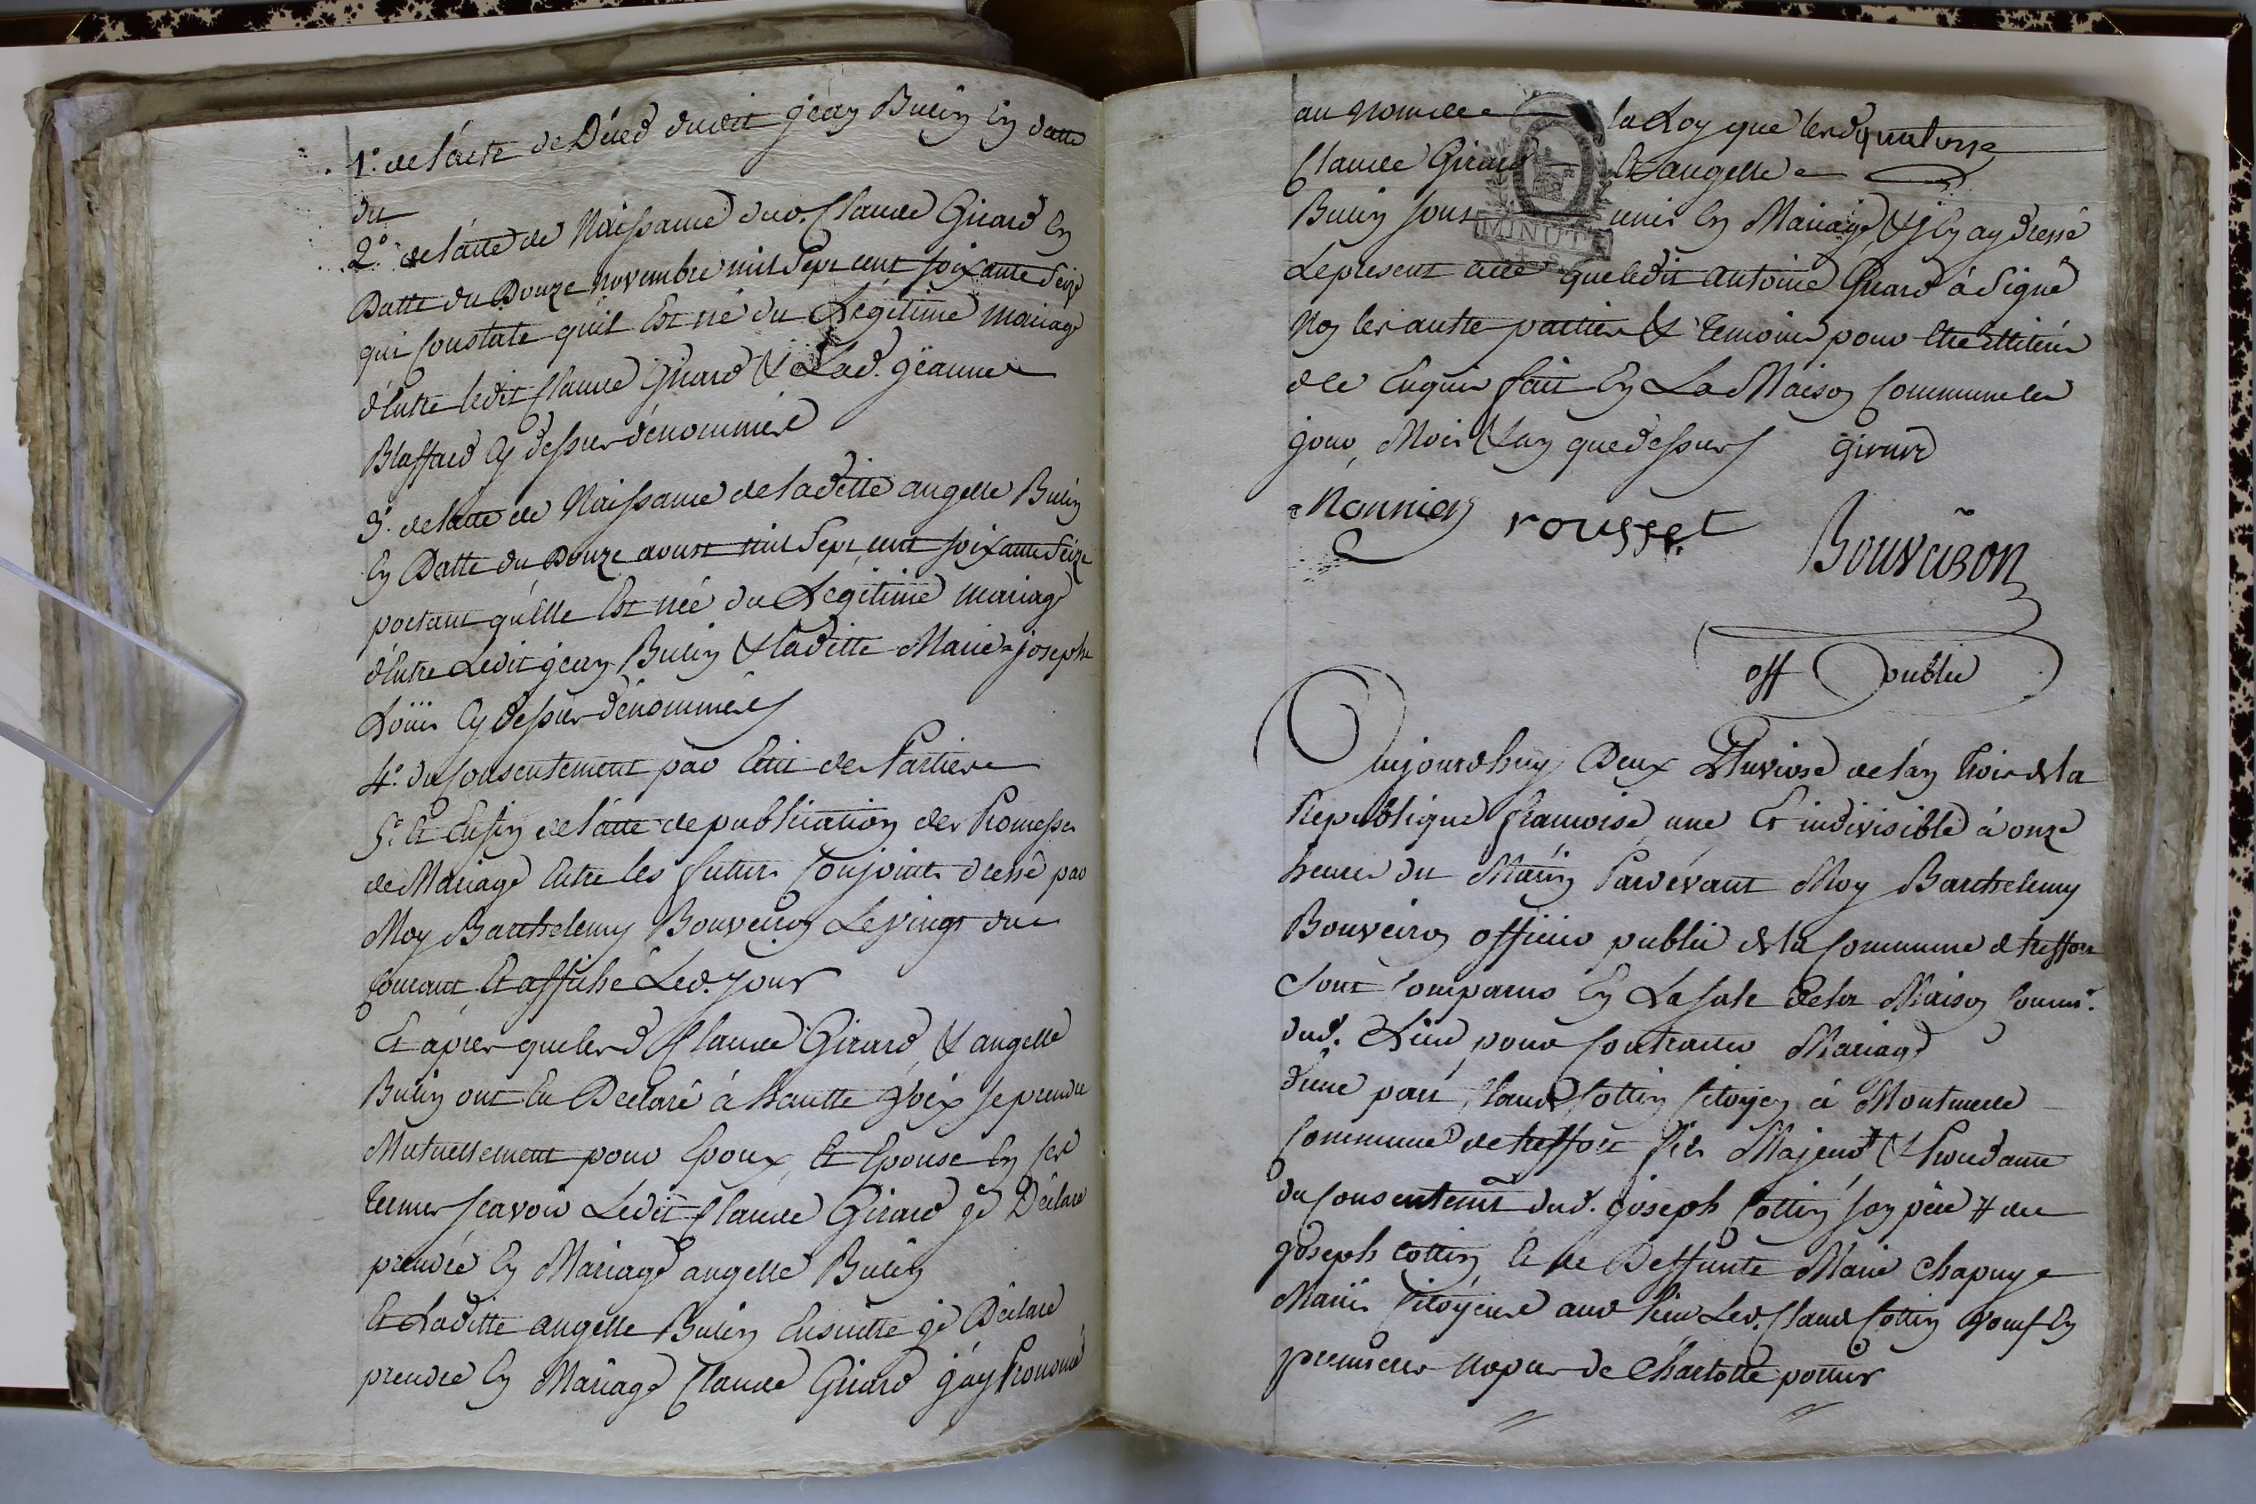 1.° de l'acte de Décd dudit jean Bulin en datte
du
2.° de l'atte de Naissance dud. Claude Girard En
Datte du Douze novembre mil sept cent soixante Seize
qui Constate qu'il Est né du Légitime mariage
d'Entre ledit Claude Girard & Lad. jeanne
Blaffard cy dessus dénommés
3.° de l'atte de Naissance de laditte angelle Bulin
En Datte du Douze aoust mil Sept cent soixante Seize
portant qu'elle Est née du Légitime mariage
d'Entre Ledit jean Bulin & laditte Marie josephe
Loüis Cy dessus dénommés
4.° du Consentement par Ecrit des Parties
5.° Et Enfin de l'atte de publication des Promesses
de Mariage Entre les futurs Conjoints dressé par
Moy Barthelemy Bouveiron Le vingt du
Courant Et affiché Led. jour
Et aprés que lesd Claude Girard & angelle
Bulin ont Eu Déclaré à haulte voix se prendre
Mutuellement pour Epoux Et Epouse En ses
termes scavoir Ledit Claude Girard je Déclare
prendre En Mariage angelle Bulin
Et Laditte angelle Bulin Ensuitte je Déclare
prendre En Mariage Claude Girard j'ay Prononcé
au Nom de la Loy que lesd
Claude Girard Et angelle
Bulin sont unis En Mariage, & j'En ay dressé
Le present acte que ledit antoine Girard à Signé
Non les autre parties & temoins pour Etre illitérés
de ce Enquis fait En La Maison Commune les
jour, Mois & an que dessus girard
Monnier rousset Bouveiron
off public
Aujourdhuy Deux Pluviose de l'an trois de la
Republique francoise une Et indivisible à onze
heures du Matin Pardevant Moy Barthelemy
Bouveiron officier public de la Commune de treffort
Sont Comparus En La Sale de la Maison Comm.e
dud. Lieu pour Contracter Mariage
d'une part, Claude Cottin Citoyen à Montmerle
Commune de treffort fils Majeur & Procedant
du Consentemt dud. joseph Cottin son père # de
joseph Cottin Et de Deffunte Marie Chapuy
Mariés Citoyens aud lieu Led. Claude Cottin Veuf En
premieres Nopces de Charlotte